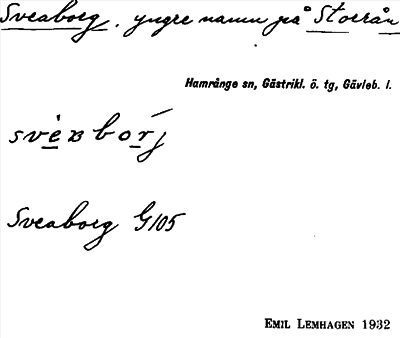 Sveaborg. yngre namn på Storrån
Hamrånge sn, Gästrikl. ö. tg, Gävleb. l.
Sveaborg G105
EMIL LEMHAGEN 1932